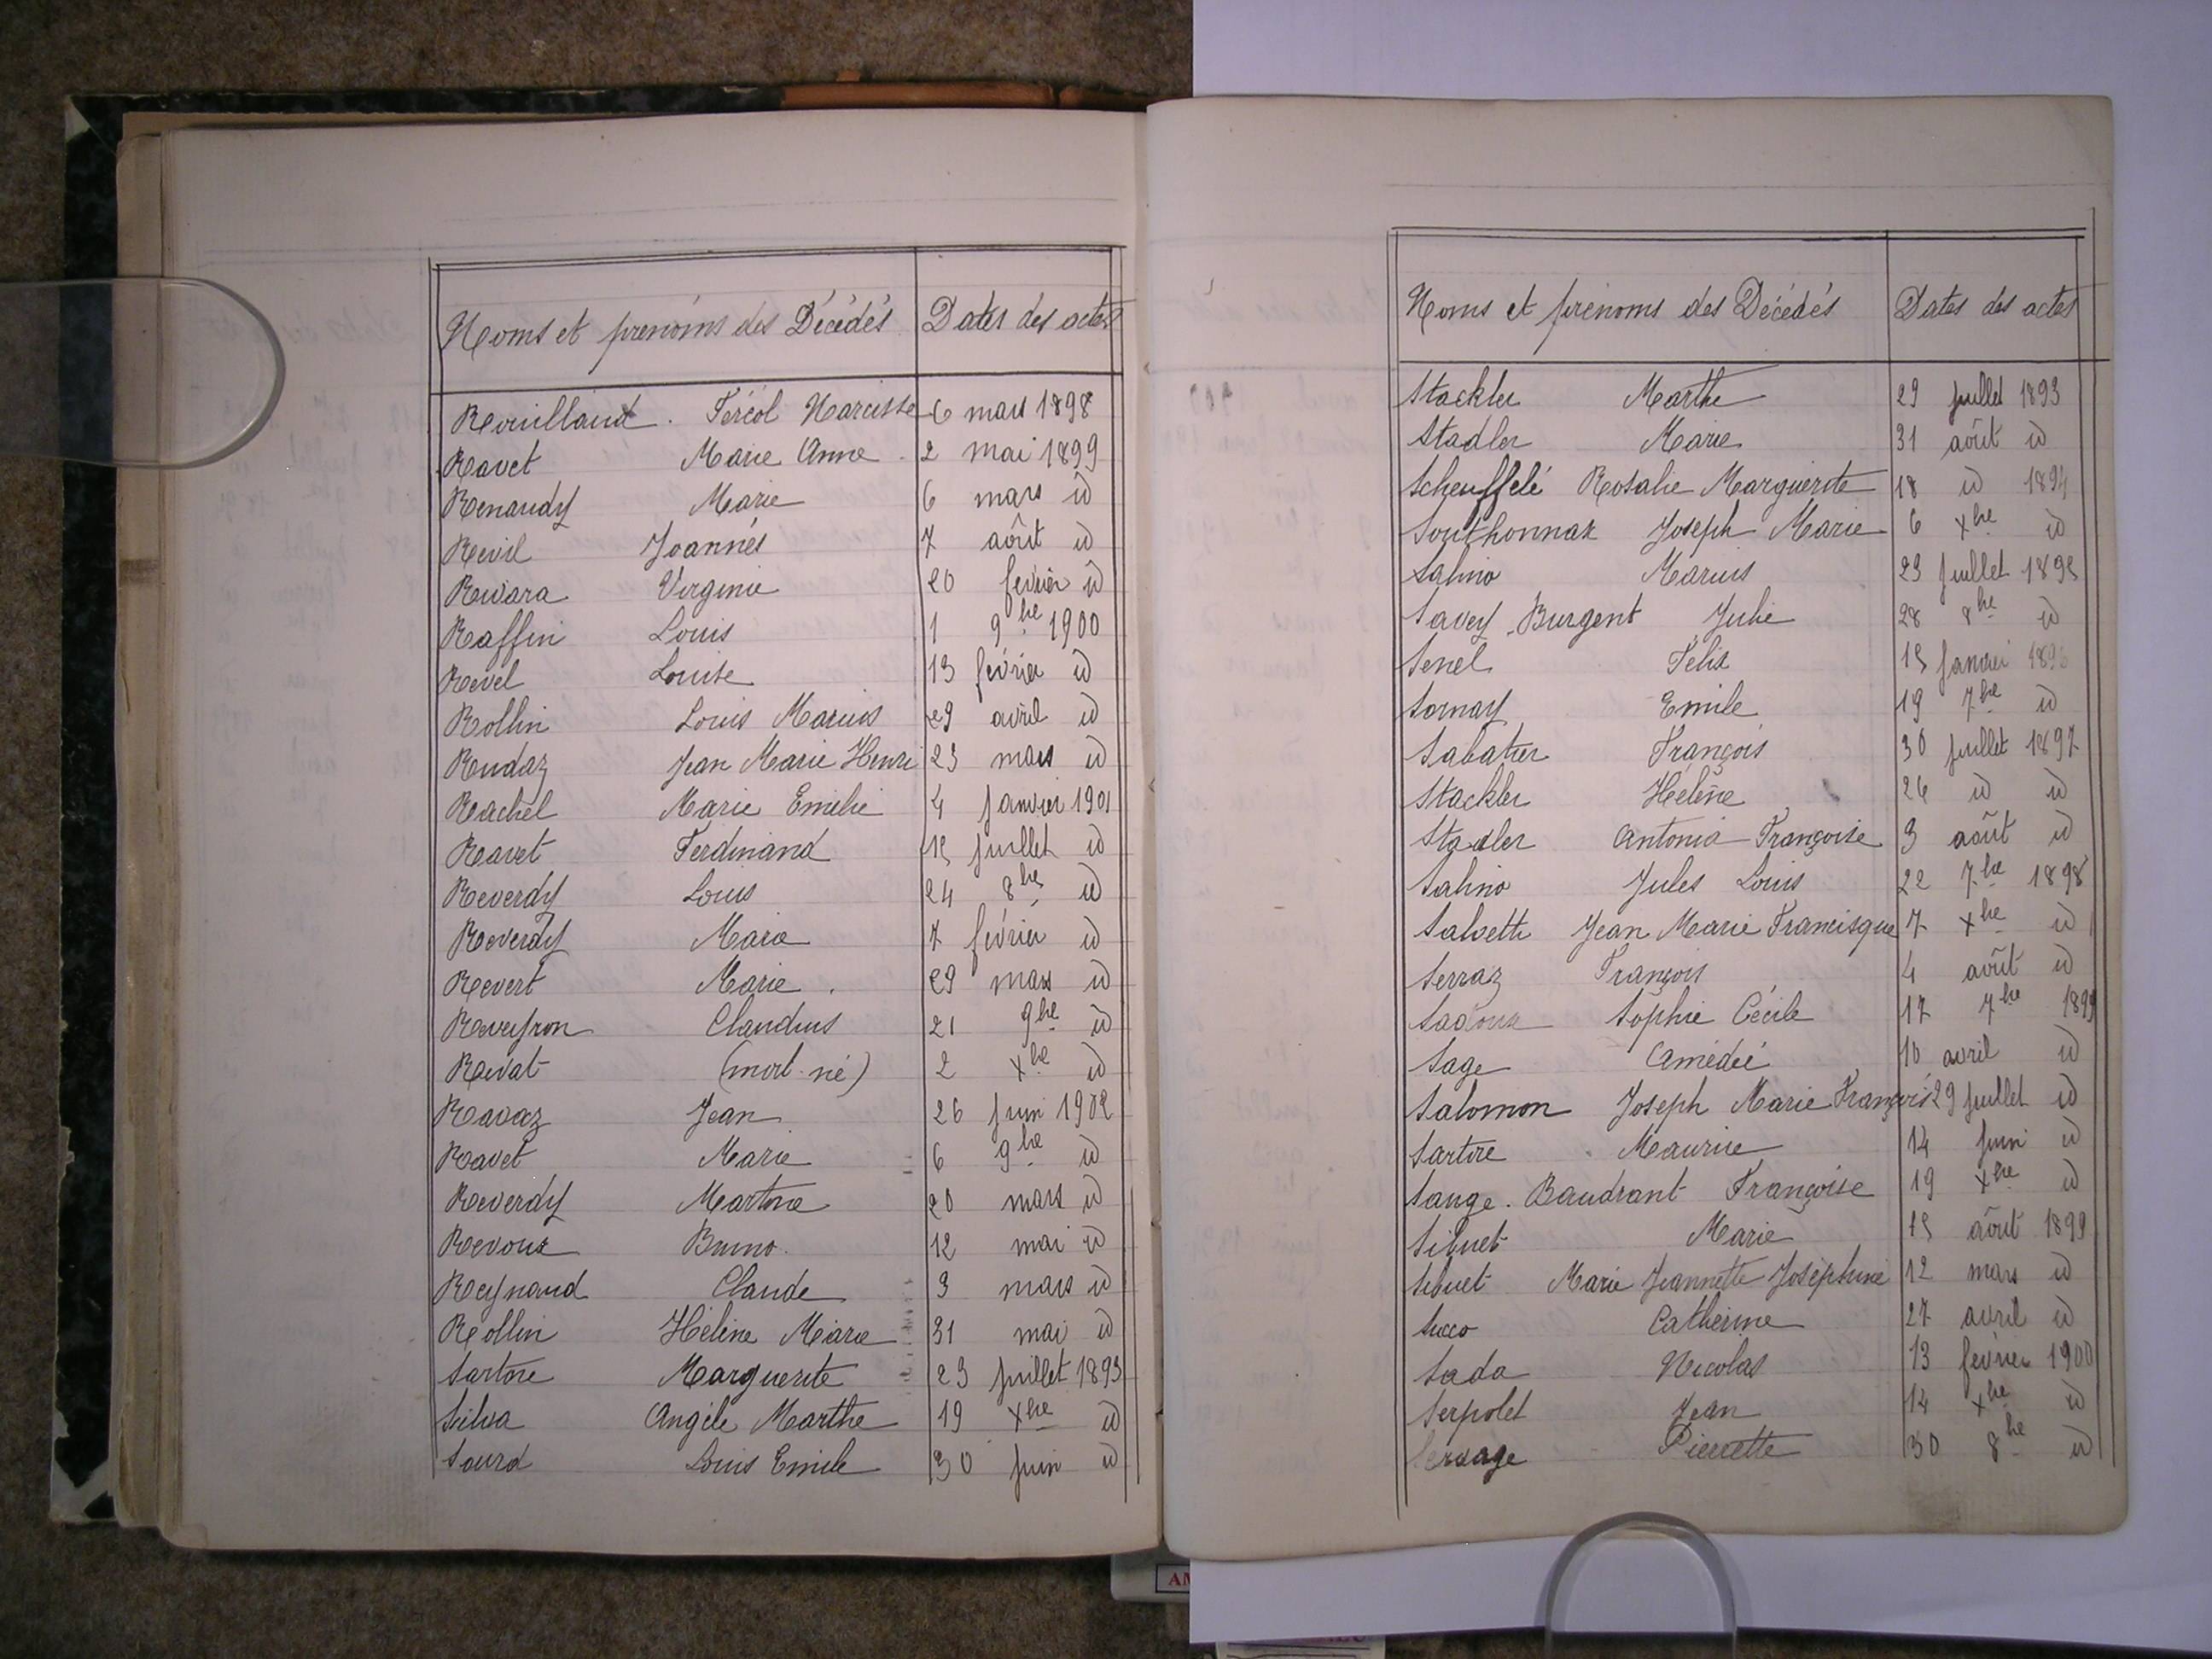 Noms et prénoms des Décédés Dates des actes
Rouillaud. Fercol Narcisse 6 mars 1898
Ravet Marie Anne 2 mai 1899
Renaudy Marie 6 mars id
Revil Joannès 7 août id
Rivara Virginie 20 février id
Raffin Louis 1 9bre 1900
Revel Louise 13 février id
Rollin Louis Marius 29 avril id
Rudaz Jean Marie Henri 23 mars id
Rachel Marie Emilie 4 janvier 1901
Ravet Ferdinand 15 juillet id
Reverdy Louis 24 8bre id
Reverdy Marie 7 février id
Revert Marie. 29 mars id
Reveyron Claudius 21 9bre id
Rivat (mort-né) 2 xbre id
Ravaz Jean 26 juin 1902
Ravet Marie 6 9bre id
Reverdy Martine 20 mars id
Revoux Bruno. 12 mai id
Reynaud Claude 3 mars id
Rollin Hélène Marie 31 mai id
Sartore Marguerite 23 juillet 1893
Silva Angèle Marthe 19 xbre id
Sourd Louis Emile 30 juin id
Noms et prénoms des Décédés Dates des actes
Stackler Marthe 29 juillet 1893
Stadler Marie 31 août id
Scheuffelé Rosalie Marguerite 18 id 1894
Southonnax Joseph Marie 6 xbre id
Salino Marius 23 juillet 1895
Savey-Burgent Julie 28 8bre id
Senel Félix 15 janvier 1896
Sornay Emile 19 7bre id
Sabatier François 30 juillet 1897
Stackler Hélène 26 id id
Stadler Antonia Françoise 3 août id
Salino Jules Louis 22 7bre 1898
Salvetti Jean Marie Francisque 7 xbre id
Serraz François 4 août id
Sadoux Sophie Cécile 17 7bre 1899
Sage Amédée 10 avril id
Salomon Joseph Marie François 29 juillet id
Sartore Maurice 14 juin id
Sauge. Baudrant Françoise 19 xbre id
Sibuet Marie 15 août 1899
Sibuet Marie Jeannette Joséphine 12 mars id
Succo Catherine 27 avril id
Sada Nicolas 13 février 1900
Serpolet Jean 14 xbre id
Servage Pierrette 30 8bre id